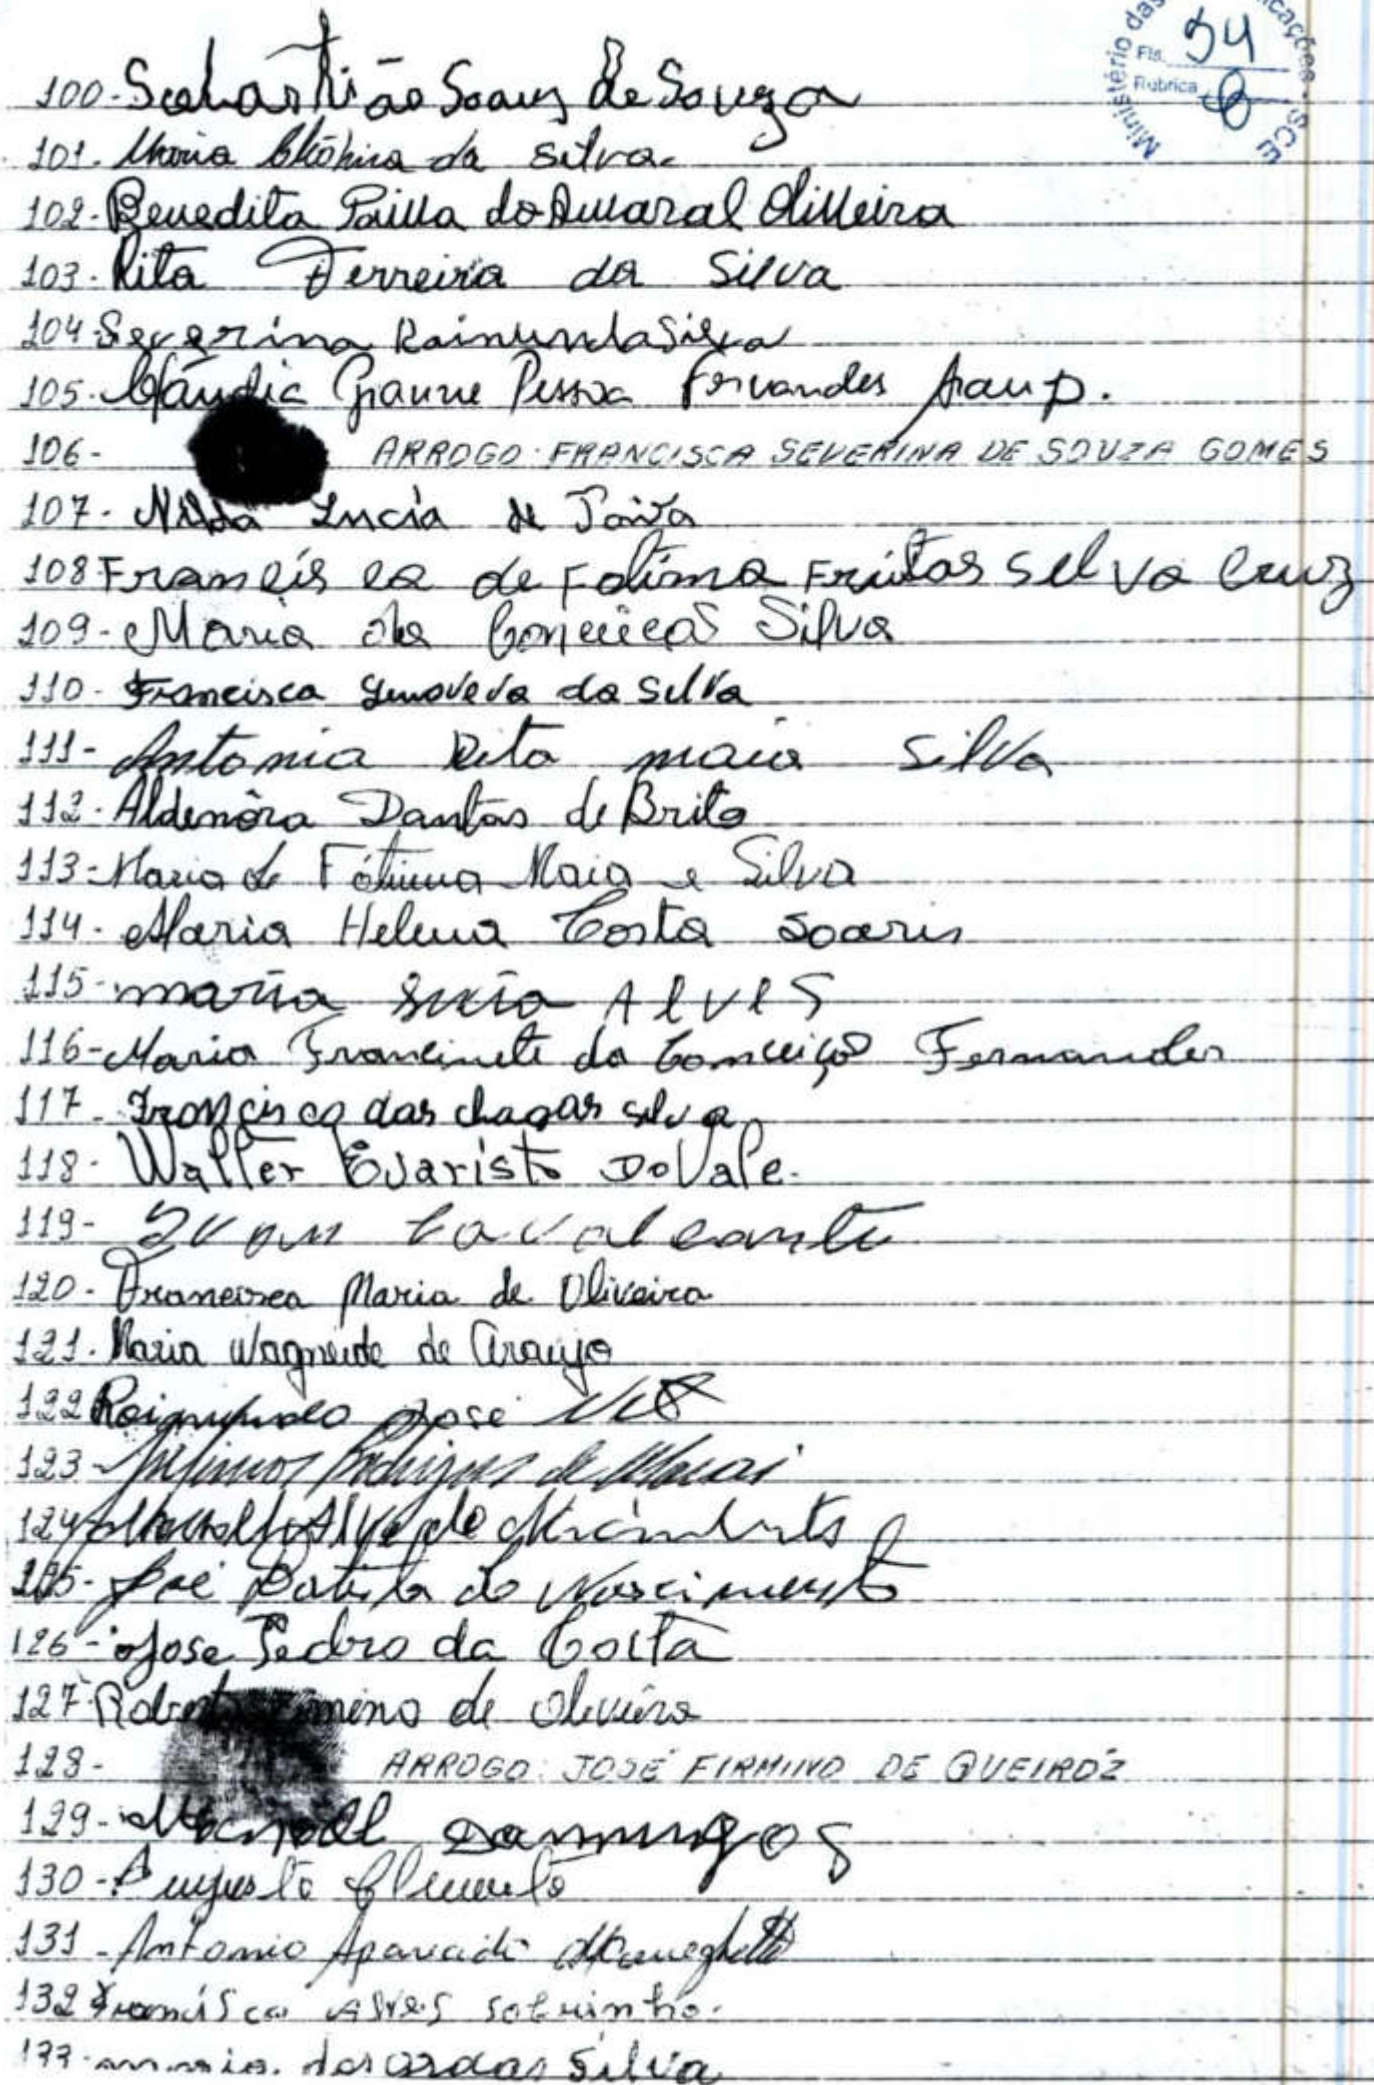 Ministério das
icações - SCE
Fls. 54
Rubrica
100- Sebastião Soares de Souza
101. Maria da Silva.
102- Benedita Paiva do Amaral Oliveira
103- Rita Ferreira da Silva
104 Severina Raimunda Silva
105- Cláudia Pessoa Fernandes Araup.
106- ARROGO: FRANCISCA SEVERINA DE SOUZA GOMES
107- Nilda Lucia de Paiva
108 Francis ca de Fatima Freitas Silva Cruz
109- Maria da Conceicao Silva
110- Francisca Genoveva da Silva
111- Antonia Rita maia Silva
112- Aldenôra Dantas de Brito
113- Maria de Fátima Maia e Silva
114- Maria Helena Costa Soares
115- maria lucia Alves
116- Maria Francinete da Conceição Fernandes
117- Francisca das chagas silva
118- Walter Evaristo Do Vale.
119- Ivan Cavalcante
120- Francisca Maria de Oliveira
121- Maria Wagneide de Araujo
122 Raimundo José Neto
123- Rodrigues de Morais
124 Alve do Nascimento
125- José Batista do Nascimento
126- José Pedro da Costa
127 Roberto de Oliveira
128- ARROGO: JOSÉ FIRMINO DE QUEIRÓZ
129- Manoel Domingos
130- Augusto Clemente
131- Antonio Aparecido Meneghetti
132 Francisca Alves Sobrinho.
133- das Silva